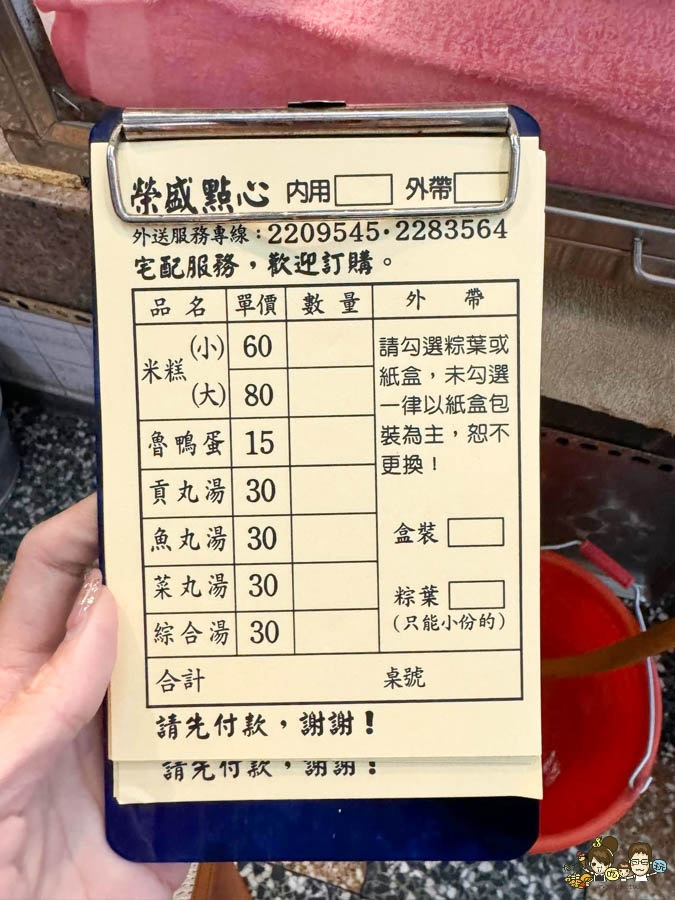 榮盛點心 內用 外帶
外送服務專線：2209545·2283564
宅配服務，歡迎訂購。
品名 單價 數量 外帶
米糕 (小) 60
(大) 80
請勾選粽葉或
紙盒，未勾選
一律以紙盒包
裝為主，恕不
更換！
魯鴨蛋 15
貢丸湯 30
魚丸湯 30
盒裝
菜丸湯 30
粽葉
(只能小份的)
綜合湯 30
合計 桌號
請先付款，謝謝！
請先付款，謝謝！